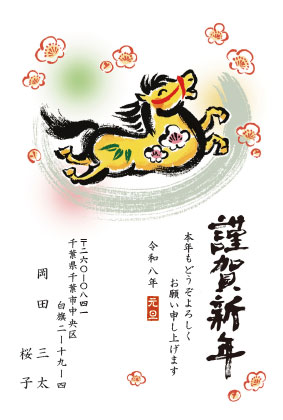 謹賀新年
本年もどうぞよろしく
お願い申し上げます
令和八年 元旦
〒二六〇-〇八四一
千葉県千葉市中央区
白旗二-十九-四
岡田 三太
桜子